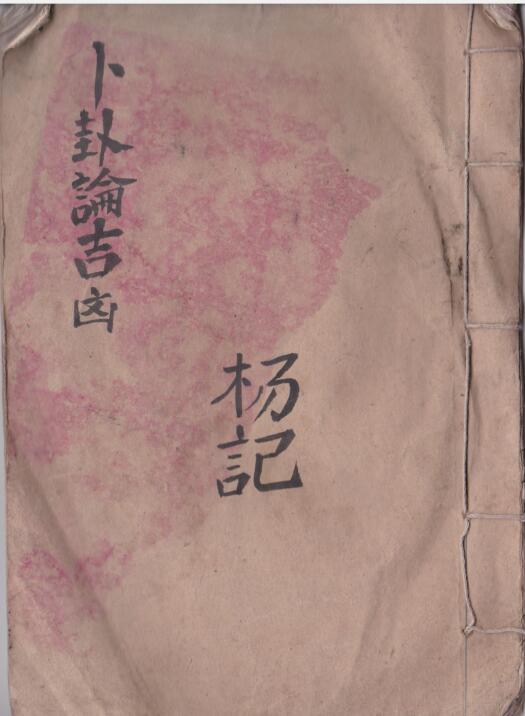 卜卦論吉凶
杨記